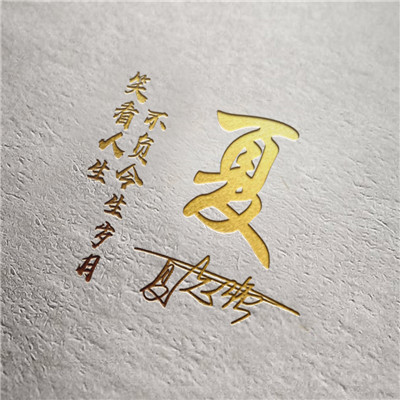 夏
笑看人生
不负今生岁月